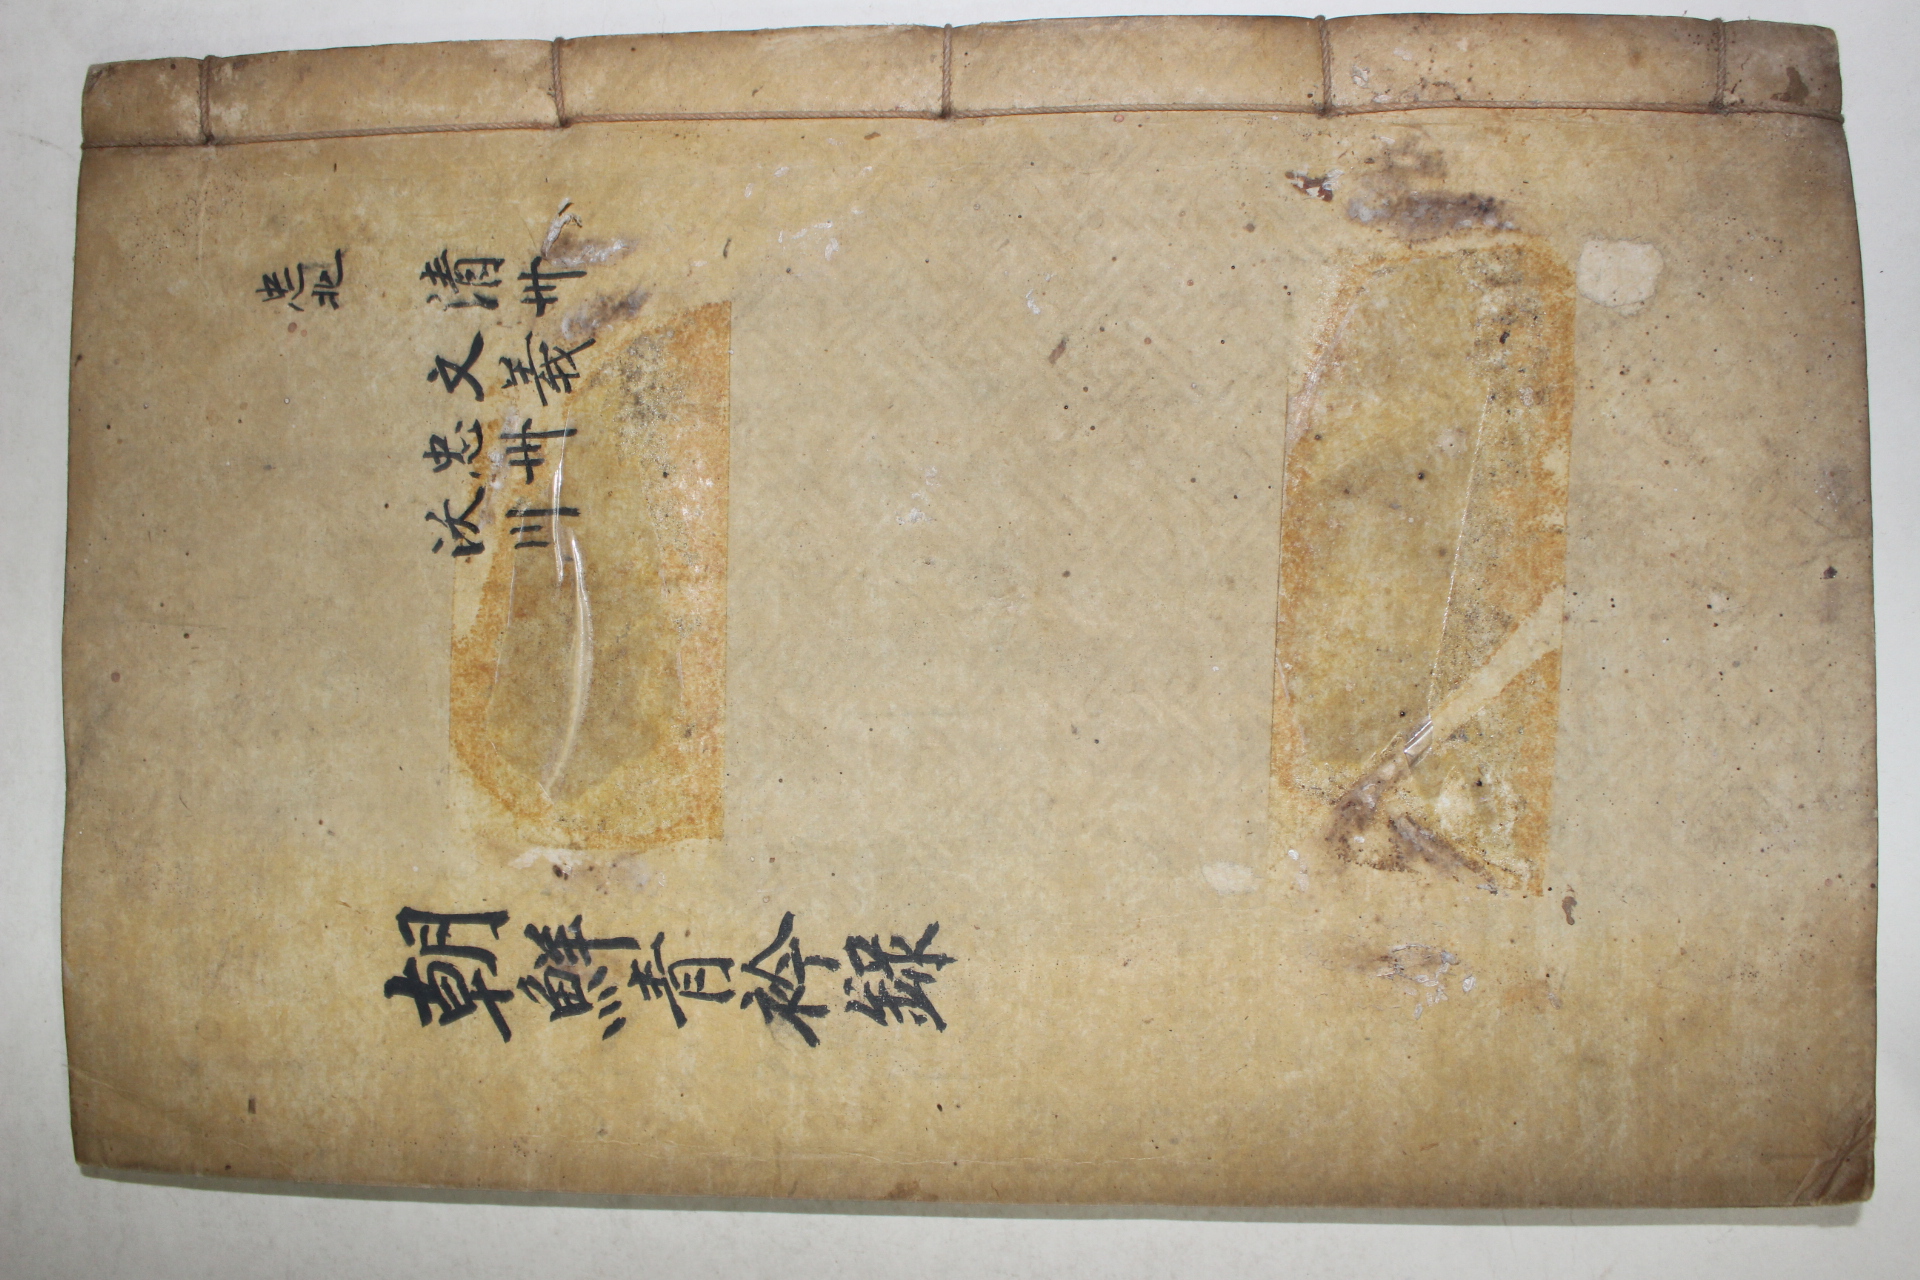 忠北
清州
文義
忠州
沃川
朝鮮青衿錄